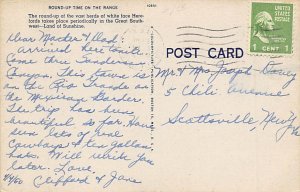 ROUND-UP TIME ON THE RANGE
The round-up of the vast herds of white face Herefords takes place periodically in the Great Southwest—Land of Sunshine.
Dear Mother & Dad:
Arrived here tonite
Come thru
Canyon. This town is
on the Rio Grande on
the Mexican Border.
The trip has been
beautiful so far. Have
seen lots of real
cowboys & ten gallon
hats. Will write you
later. Love,
Clifford & Jane
POST CARD
Mr & Mrs Joseph
5 Chili Avenue
Scottsville, New York
1 CENT 1